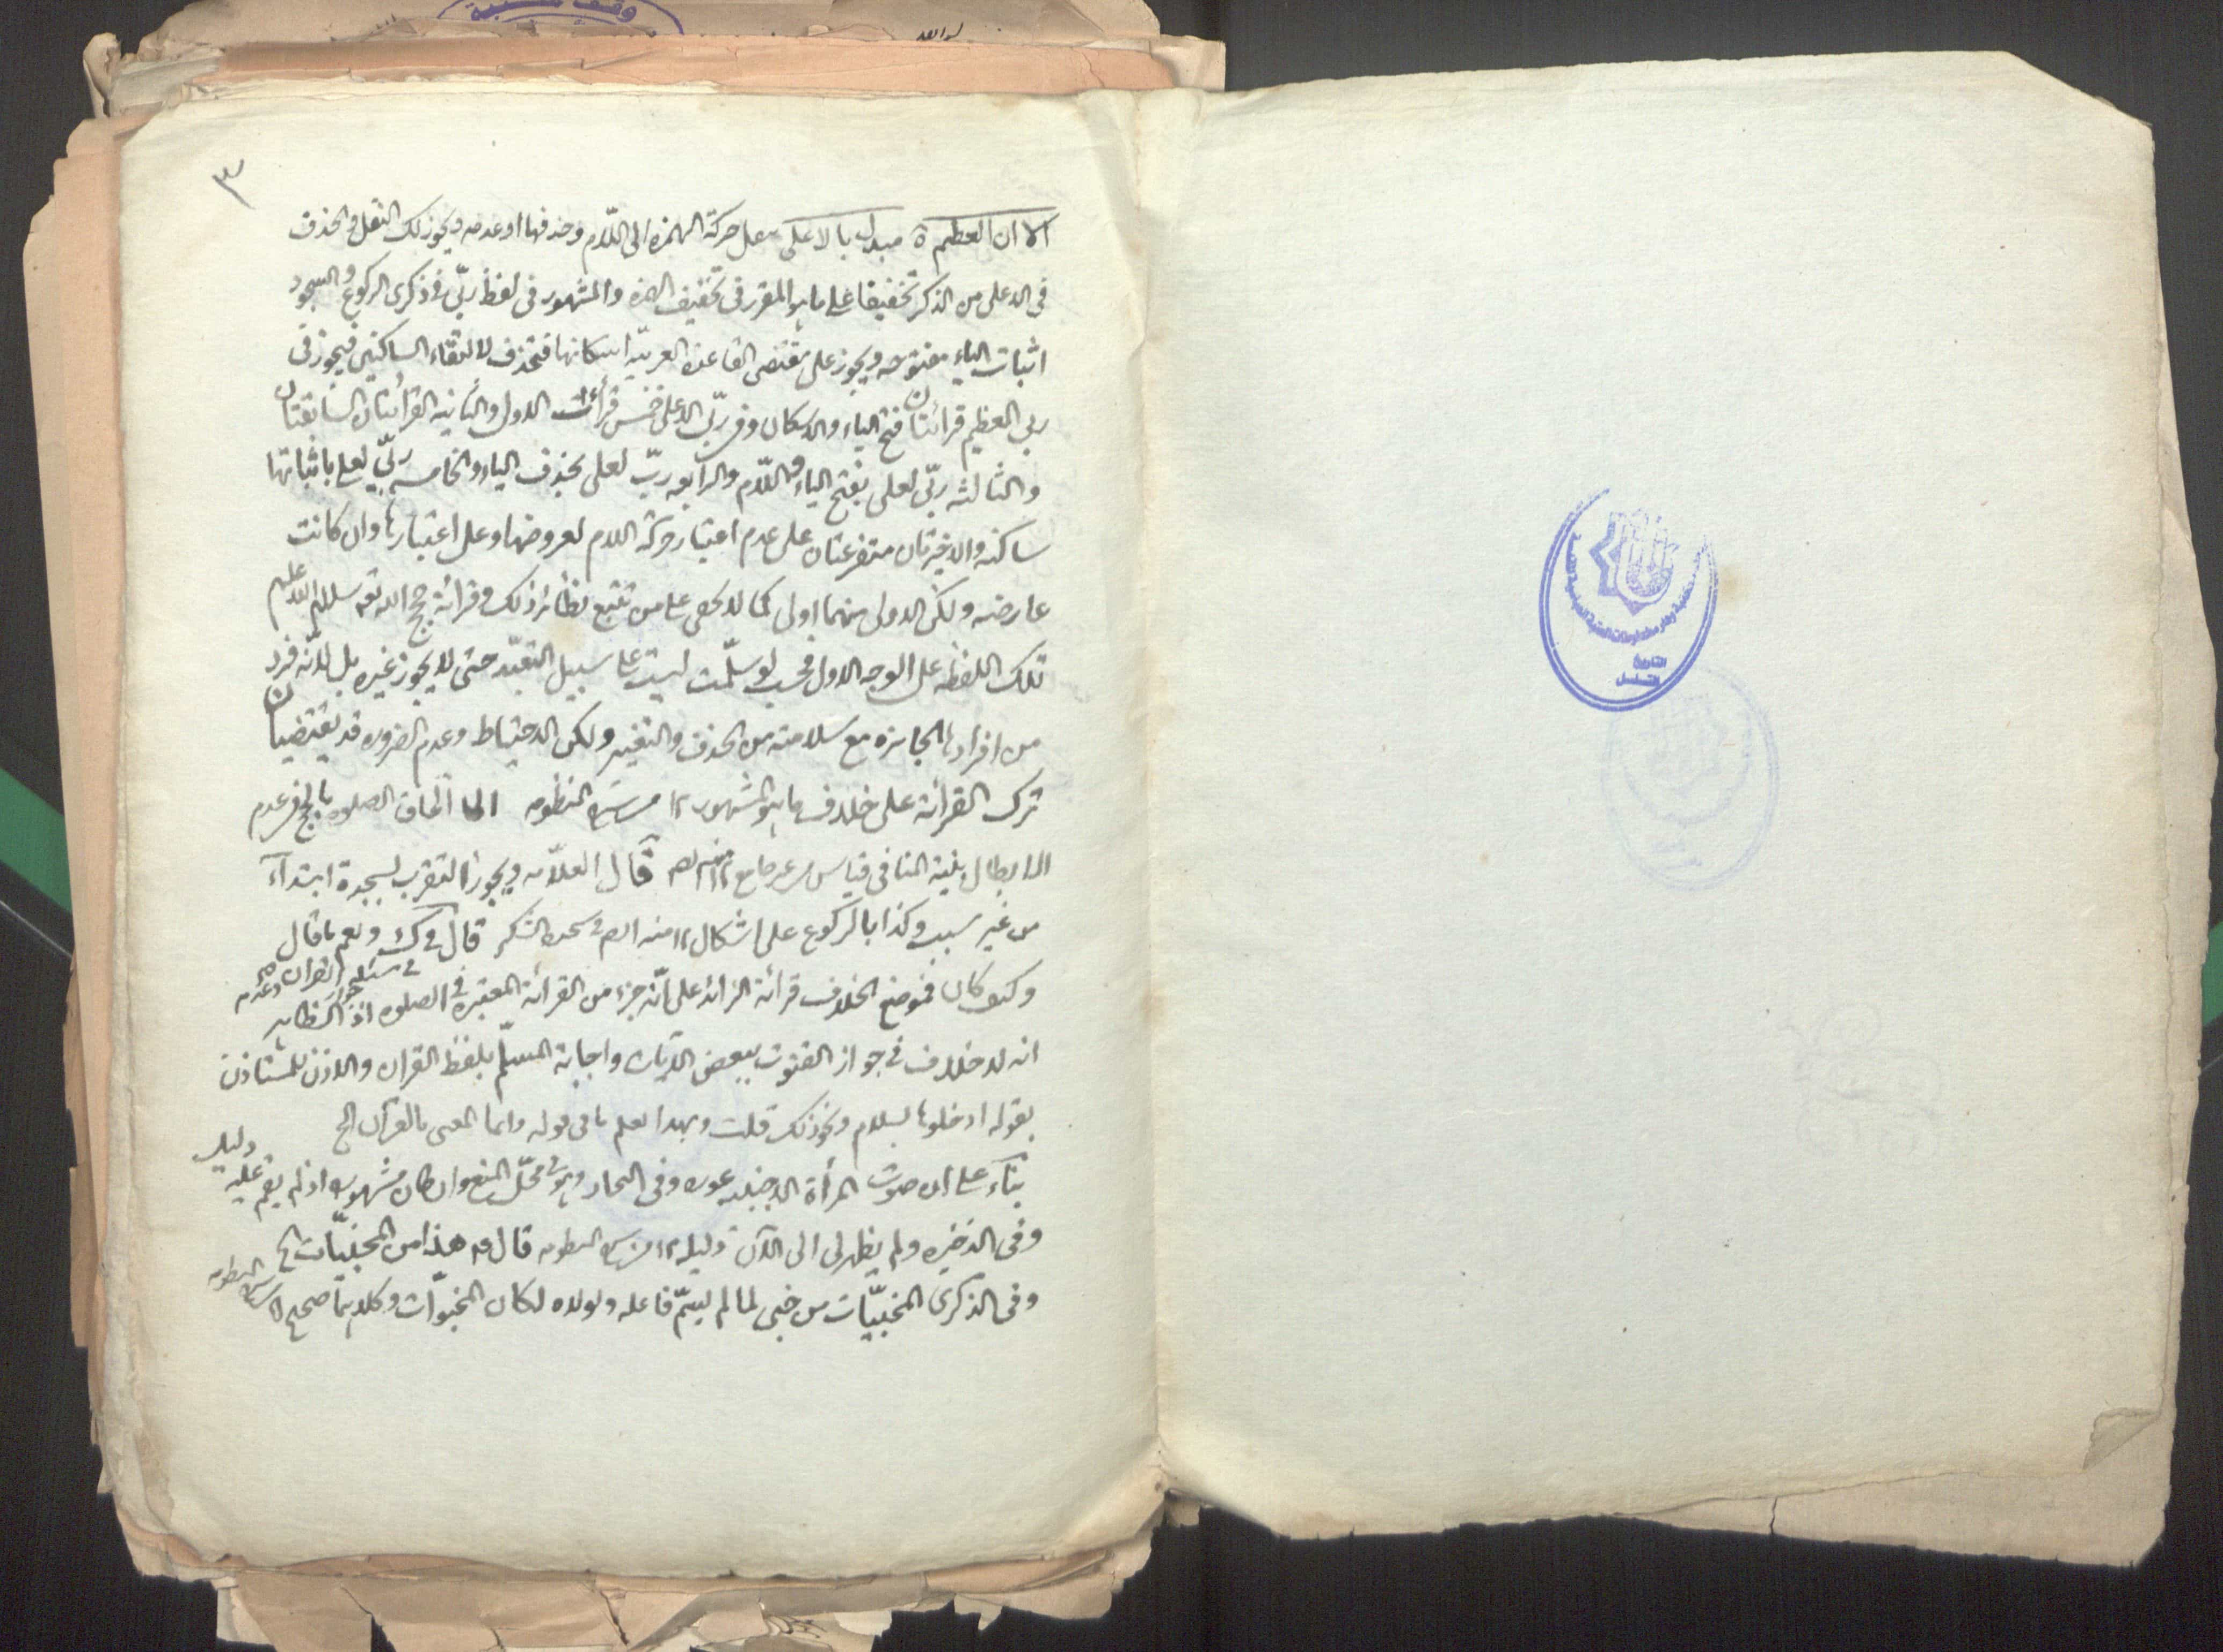 ٣
الا ان العظيم مبدل بالاعلى حركة الهمزة الى اللام وحذفها او عدمه ويجوز لك النقل والحذف
في الاعلى من الذكر تخفيفا على ما هو المقرر في تخفيف الهمزه والمشهور في لفظ ربّي في ذكرى الركوع والسجود
اثبات الياء مفتوحه ويجوز على مقتضى القاعده العربيه اسكانها فتحذف لالتقاء الساكنين فيجوز في
ربي العظيم قرائتان فتح الياء والاسكان وفي ربّي الاعلى خمس قرأت الاولى والثانيه القرائتان السابقتان
والثالثه ربّي لعلى بفتح الياء واللام والرابعه ربّ لعلى بحذف الياء والخامسه ربّي لعلى باثباتها
ساكنه والاخيرتان متفرعتان على عدم اعتبار حركة اللام لعروضها وعلى اعتبارها وان كانت
عارضه ولكن الاولى منهما اولى كما لا يخفى على من تتبع نظائر ذلك وقرائة حجج الله تعه سلام الله عليهم
تلك اللفظه على الوجه الاول فحسب لو سلّمت ليست على سبيل التعبّد حتى لا يجوز غيره بل لانّه فرد
من افرادها الجائزه مع سلامته من الحذف والتغيير ولكن الاحتياط وعدم الضروره قد يقتضيان
ترك القرائة على خلاف ما هو المشهور ١٢ المنظومه الحاق الصلوه بالحج في عدم
الابطال بنية المنافي قياس من غير جامع ١٢ قال العلامه ويجوز التقرب بسجدة ابتدآء
من غير سبب وكذا بالركوع على اشكال ١٢ منه في سجده الشكر قال في ونعم ما قال
في مسئله جواز القران وعدمه صح
وكيف كان فموضع الخلاف قرائة الزائد على انّه جزء من القرائة المعتبره في الصلوه اذ الظاهر
انه لا خلاف في جواز القنوت ببعض الآيات واجابة المسلّم بلفظ القران والاذن للمستاذن
بقوله ادخلوها بسلام ونحو ذلك قلت وبهذا يعلم ما في قوله وانما المعنى بالقرآن الخ
بناء على ان صوت المرأة الاجنبيه عوره وفي البحار وهو في محلّ المنع وان كان مشهورا اذ لم يقم عليه دليل
وفي الذخيره ولم يظهر لي الى الآن دليله ١٢ المنظومه قال هذا من المخبيّات الخ
وفي الذكرى المخبيّات من خبى لما لم يسمّ فاعله ولولاه لكان المخبوّات وكلاهما صحيح ١٢ المنظومه